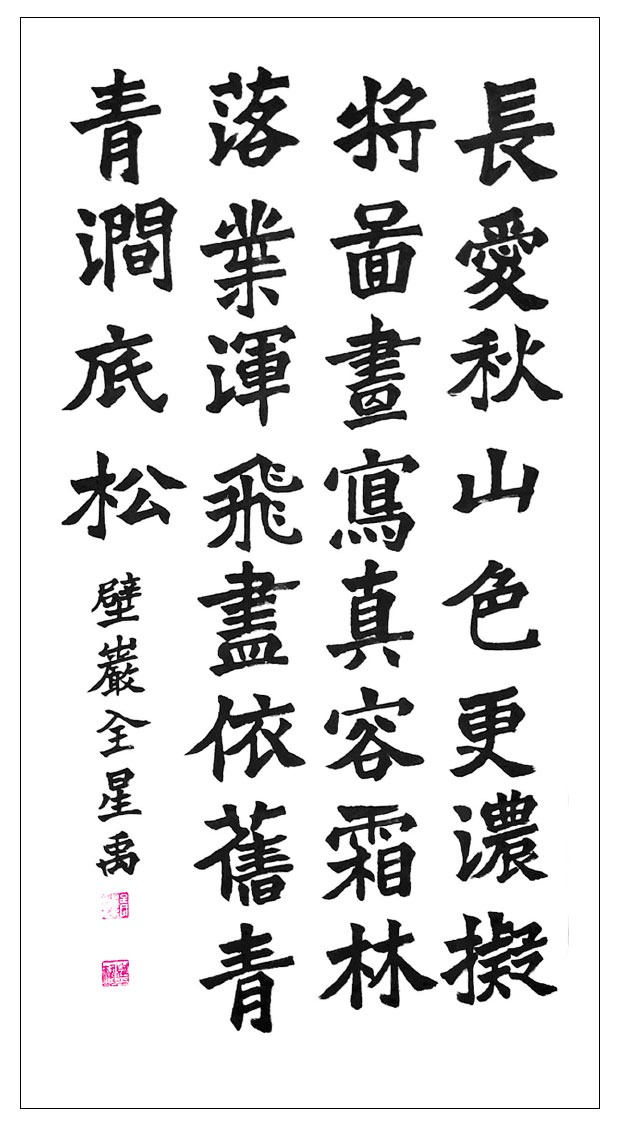 長愛秋山色更濃擬
將啚畫寫真容霜林
落業渾飛盡依舊青
青澗底松
壁巖全星禹